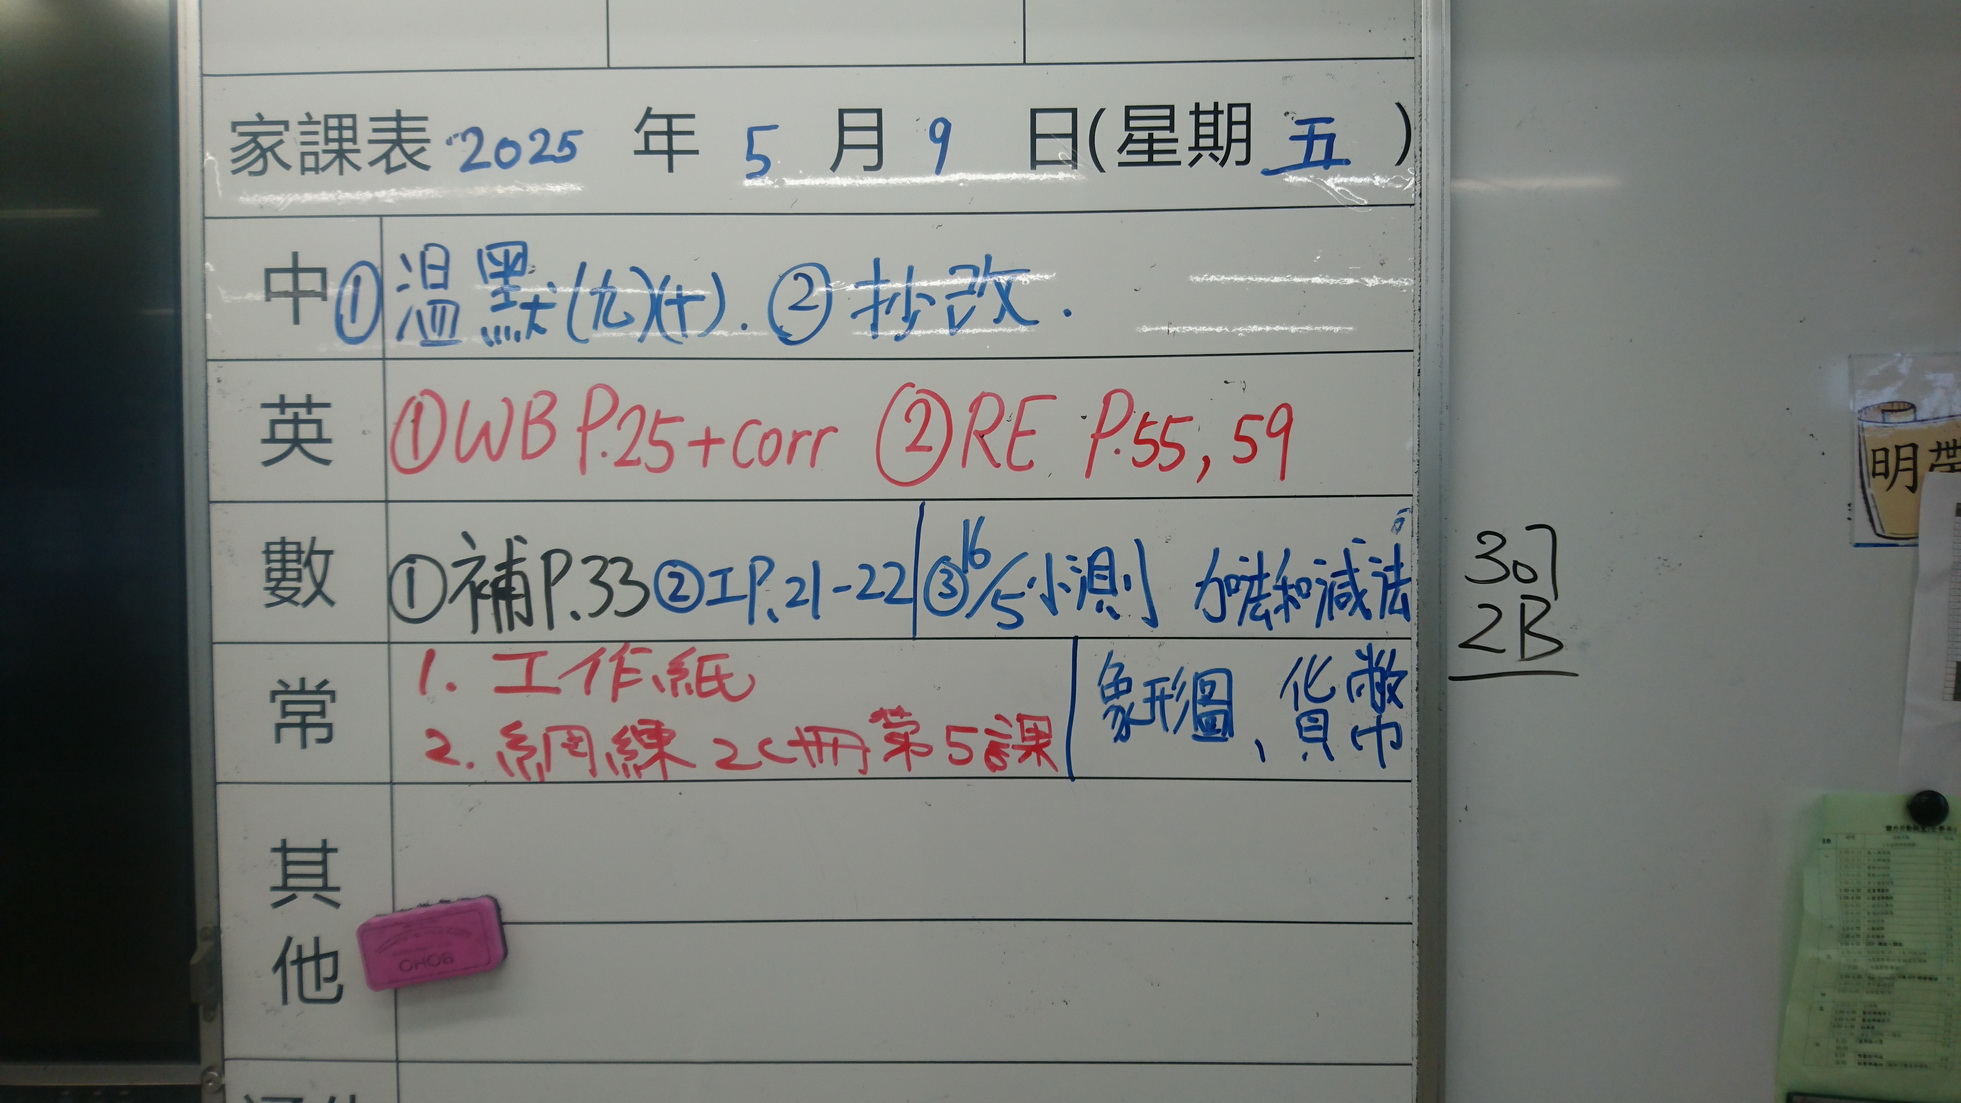 家課表 2025 年 5 月 9 日(星期 五 )
中 ① 温默(九)(十). ② 抄改.
英 ① WB P.25+corr ② RE P.55, 59
數 ① 補P.33 ② 工P.21-22 ③ 16/5 小測 加法和減法
常 1. 工作紙
2. 網練 2C冊第5課
象形圖、貨幣
其他
307
2B
明帶
OHOB